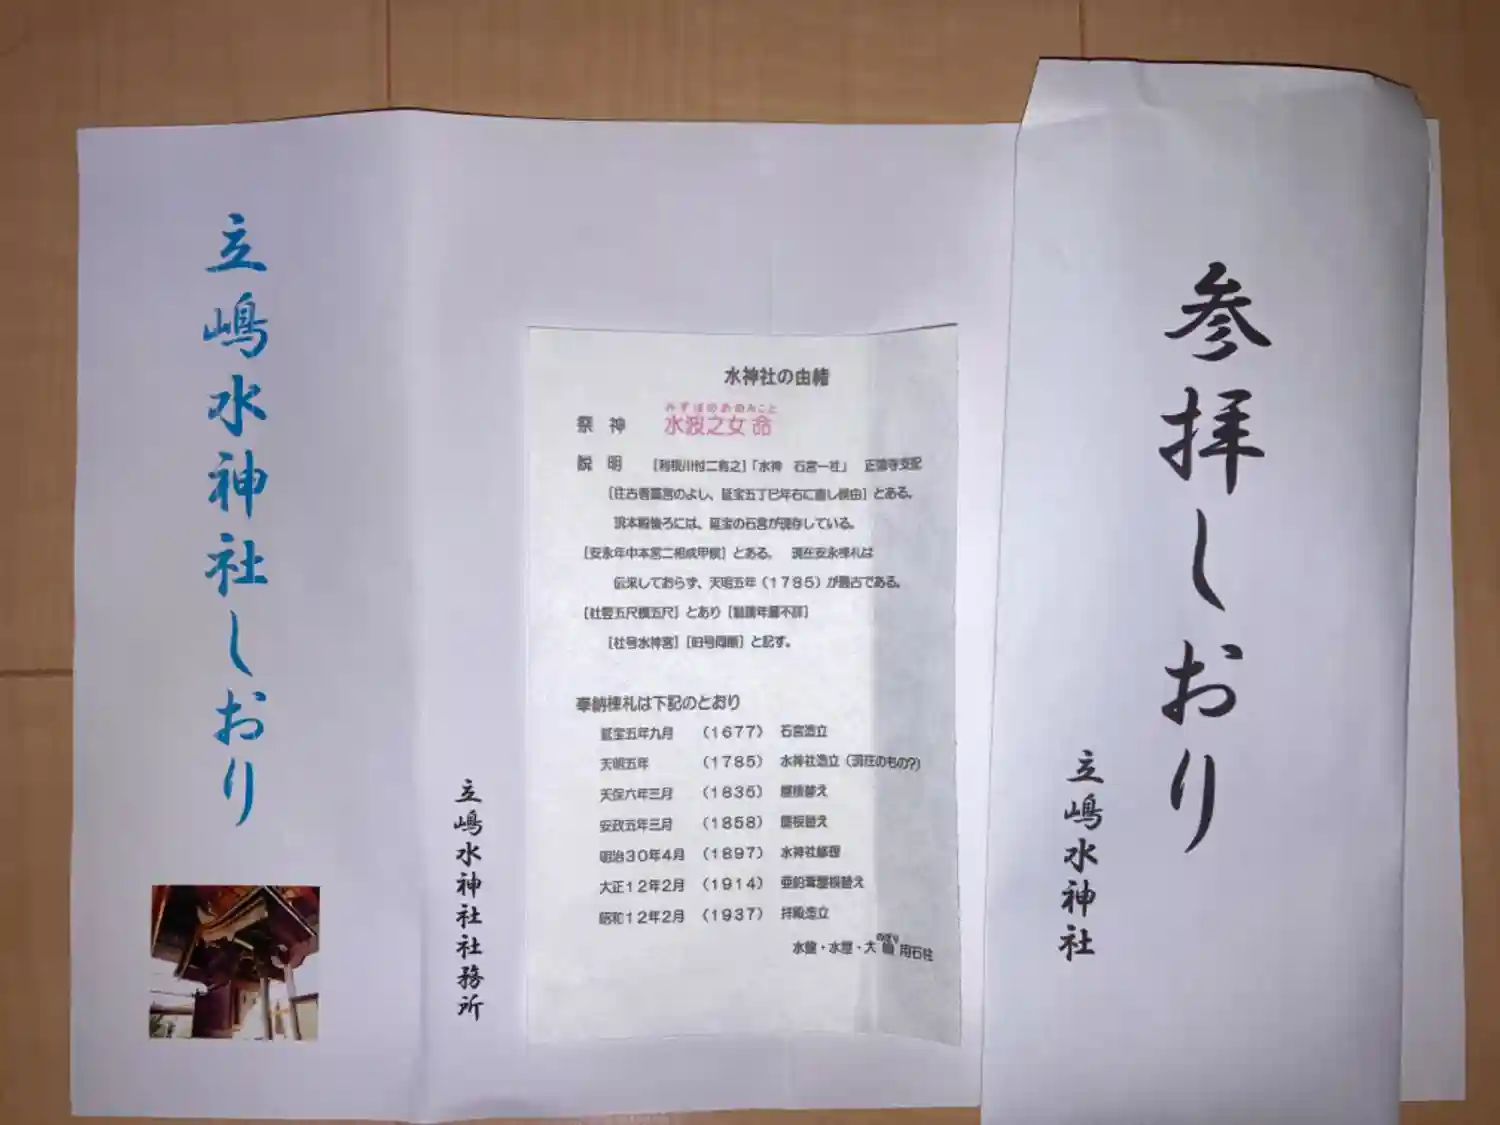 立嶋水神社しおり
立嶋水神社社務所
水神社の由緒
みずはのめのみこと
祭神 水波之女命
説明 [利根川付二有之]「水神 石宮一社」 正徳寺支配
[往古者藁宮のよし、延宝五丁巳年石に直し候由]とある。
現本殿後ろには、延宝の石宮が現存している。
[安永年中本宮二相成甲候]とある。 現在安永棟札は
伝来しておらず、天明五年(1785)が最古である。
[社竪五尺横五尺]とあり[勧請年暦不詳]
[社号水神宮][旧号同断]と記す。
奉納棟札は下記のとおり
延宝五年九月 (1677) 石宮造立
天明五年 (1785) 水神社造立(現在のもの?)
天保六年三月 (1835) 屋根替え
安政五年三月 (1858) 屋根替え
明治30年4月 (1897) 水神社修理
大正12年2月 (1914) 亜鉛葺屋根替え
昭和12年2月 (1937) 拝殿造立
のぼり
水盤・水屋・大幟用石柱
参拝しおり
立嶋水神社